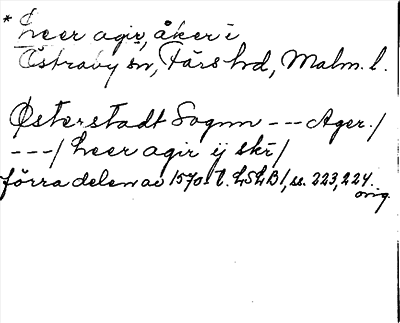 * Leer agir, åker i
Östraby sn, Färs hd, Malm. l.
Østerstadt Sognn --- Ager./
---/ Leer agir ij skr/
förra delen av 1570-t. LSLB1, ss. 223, 224.
orig.